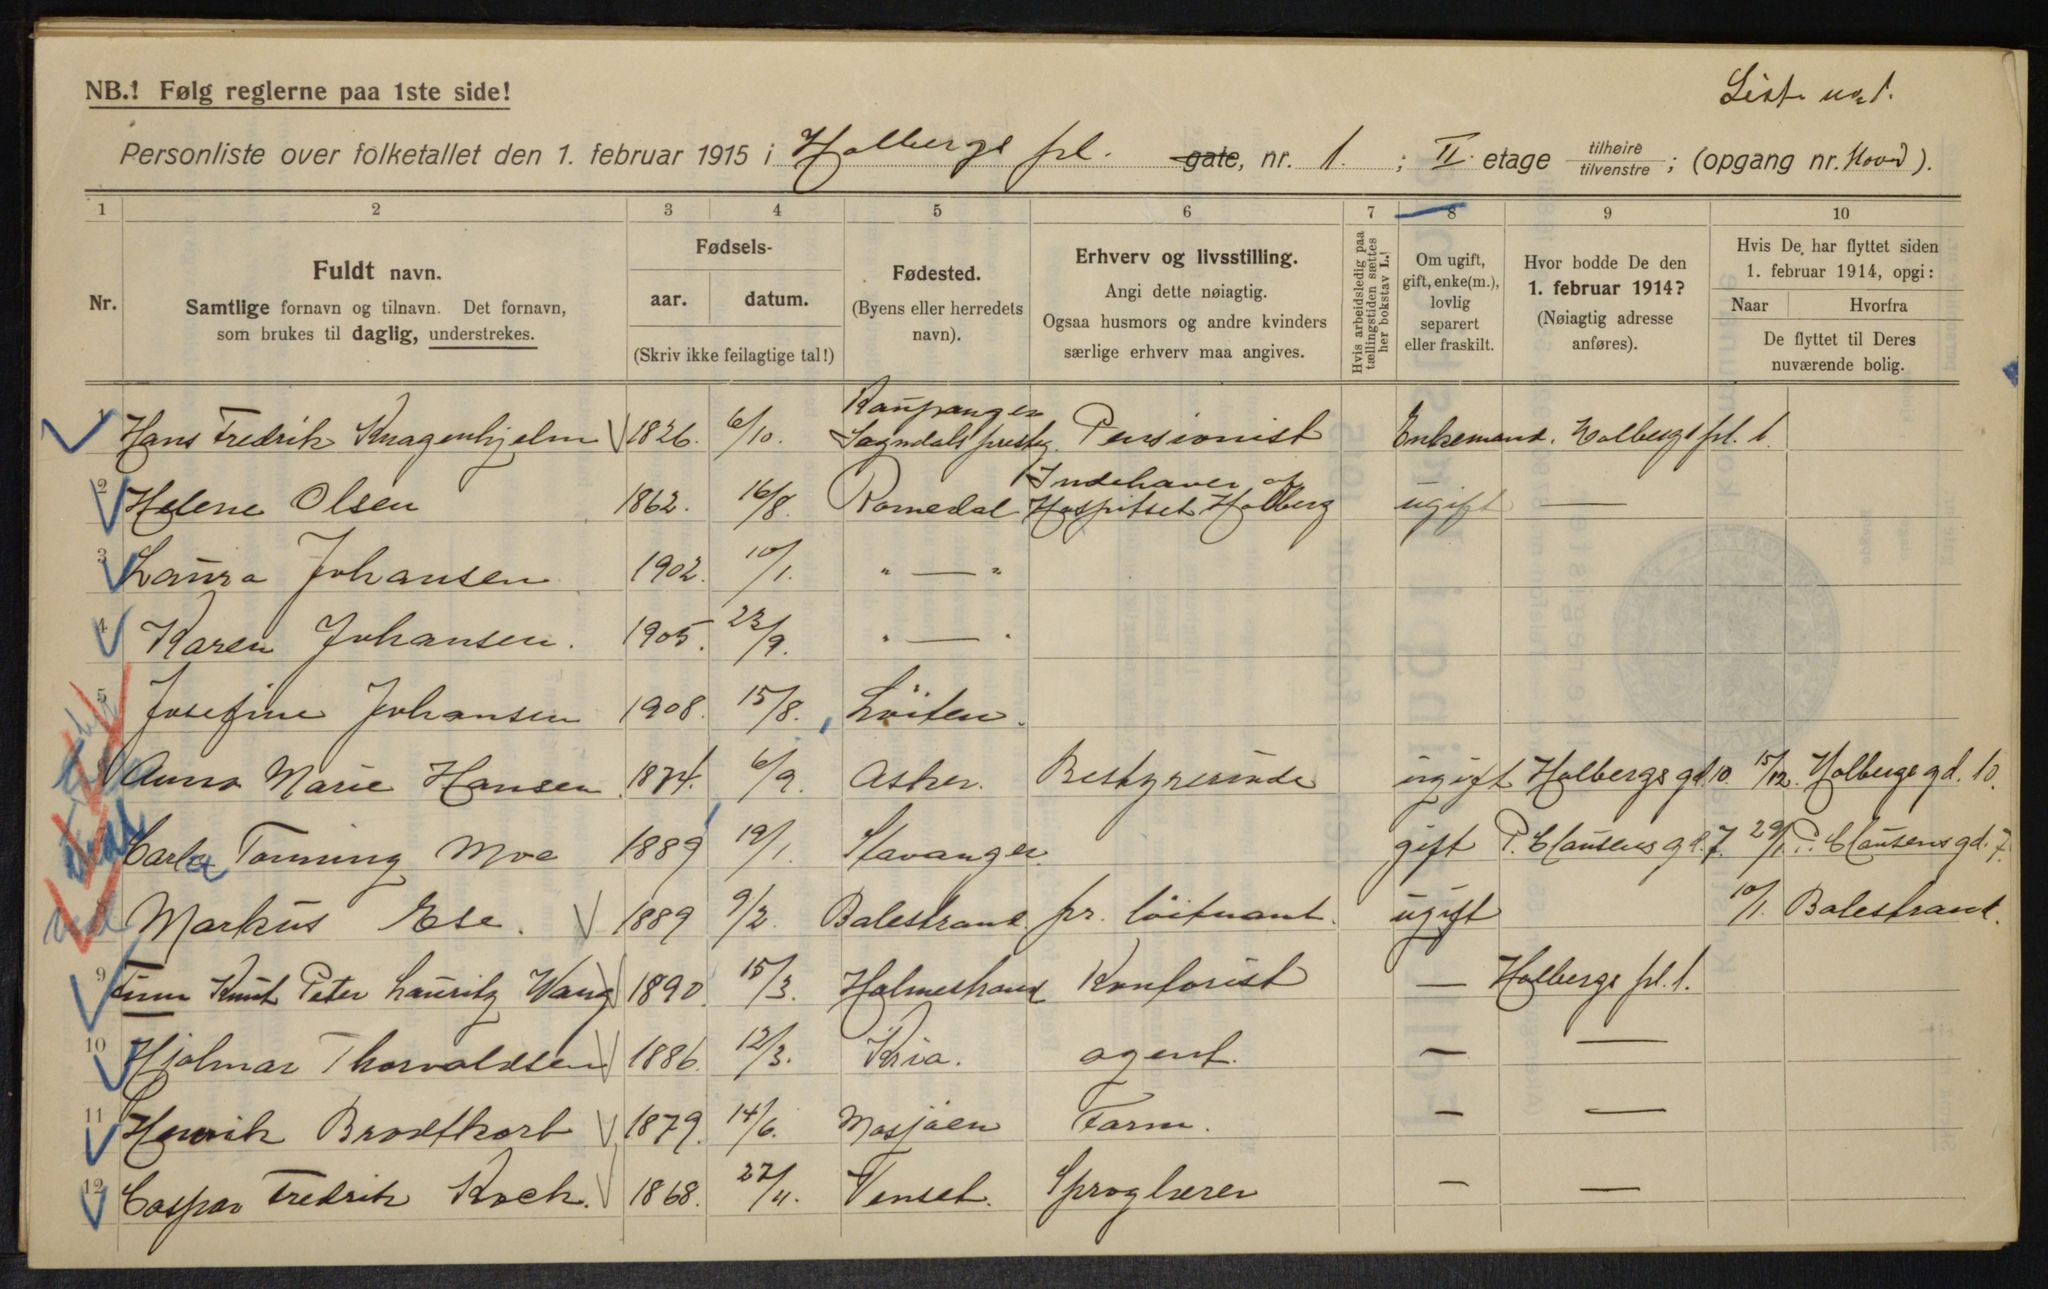 NB.! Følg reglerne paa 1ste side!
Liste no 1.
Personliste over folketallet den 1. februar 1915 i Holbergs pl. gate, nr. 1. ; II etage tilhøire tilvenstre ; (opgang nr. Hoved ).
1 2 3 4 5 6 7 8 9 10
Nr.
Fuldt navn.
Samtlige fornavn og tilnavn. Det fornavn,
som brukes til daglig, understrekes.
Fødsels-
aar. datum.
(Skriv ikke feilagtige tal!)
Fødested.
(Byens eller herredets
navn).
Erhverv og livsstilling.
Angi dette nøiagtig.
Ogsaa husmors og andre kvinders
særlige erhverv maa angives.
Hvis arbeidsledig paa
tællingstiden sættes
her bokstav L.!
Om ugift,
gift, enke(m.),
lovlig
separert
eller fraskilt.
Hvor bodde De den
1. februar 1914?
(Nøiagtig adresse
anføres).
Hvis De har flyttet siden
1. februar 1914, opgi:
Naar Hvorfra
De flyttet til Deres
nuværende bolig.
1 Hans Fredrik Knagenhjelm 1826. 6/10. Kaupanger Sogndals prestg. Pensionist Enkemand. Holbergs pl. 1.
2 Helene Olsen 1862. 16/8. Romedal Indehaver af Hospitset Holberg ugift —
3 Laura Johansen 1902. 10/1. " — "
4 Karen Johansen. 1905. 23/9. " — "
5 Josefine Johansen 1908. 15/8. Löiten.
6 Anna Marie Hansen 1874. 6/9. Asker. Bestyrerinde ugift Holbergs gd. 10. 15/12. Holbergs gd. 10.
Carla Tonning Moe 1889 19/1. Stavanger. gift P. Clausens gd. 7. 29/1 P. Clausens gd. 7.
Markus Ese. 1889 9/2. Balestrand pr. löitnant. ugift 10/1. Balestrand.
9 Finn Knut Peter Lauritz Wang 1890. 15/3. Holmestrand Kontorist — Holbergs pl. 1.
10 Hjalmar Thorvaldsen 1886. 12/3. Kria. agent. — —
11 Henrik Brodtkorb 1879. 14/6. Mosjöen Farm. — —
12 Caspar Fredrik Koch. 1868. 27/11. Tønset. Sproglærer — —